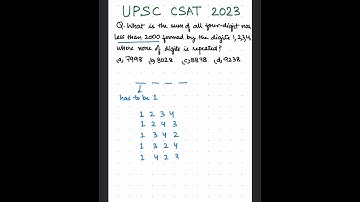 UPSC CSAT 2023
Q. What is the sum of all four-digit nos
less than 2000 formed by the digits 1,2,3,4
where none of digits is repeated?
a) 7998 b) 8028 c) 8878 d) 9238
has to be 1
1 2 3 4
1 2 4 3
1 3 4 2
1 3 2 4
1 4 2 3